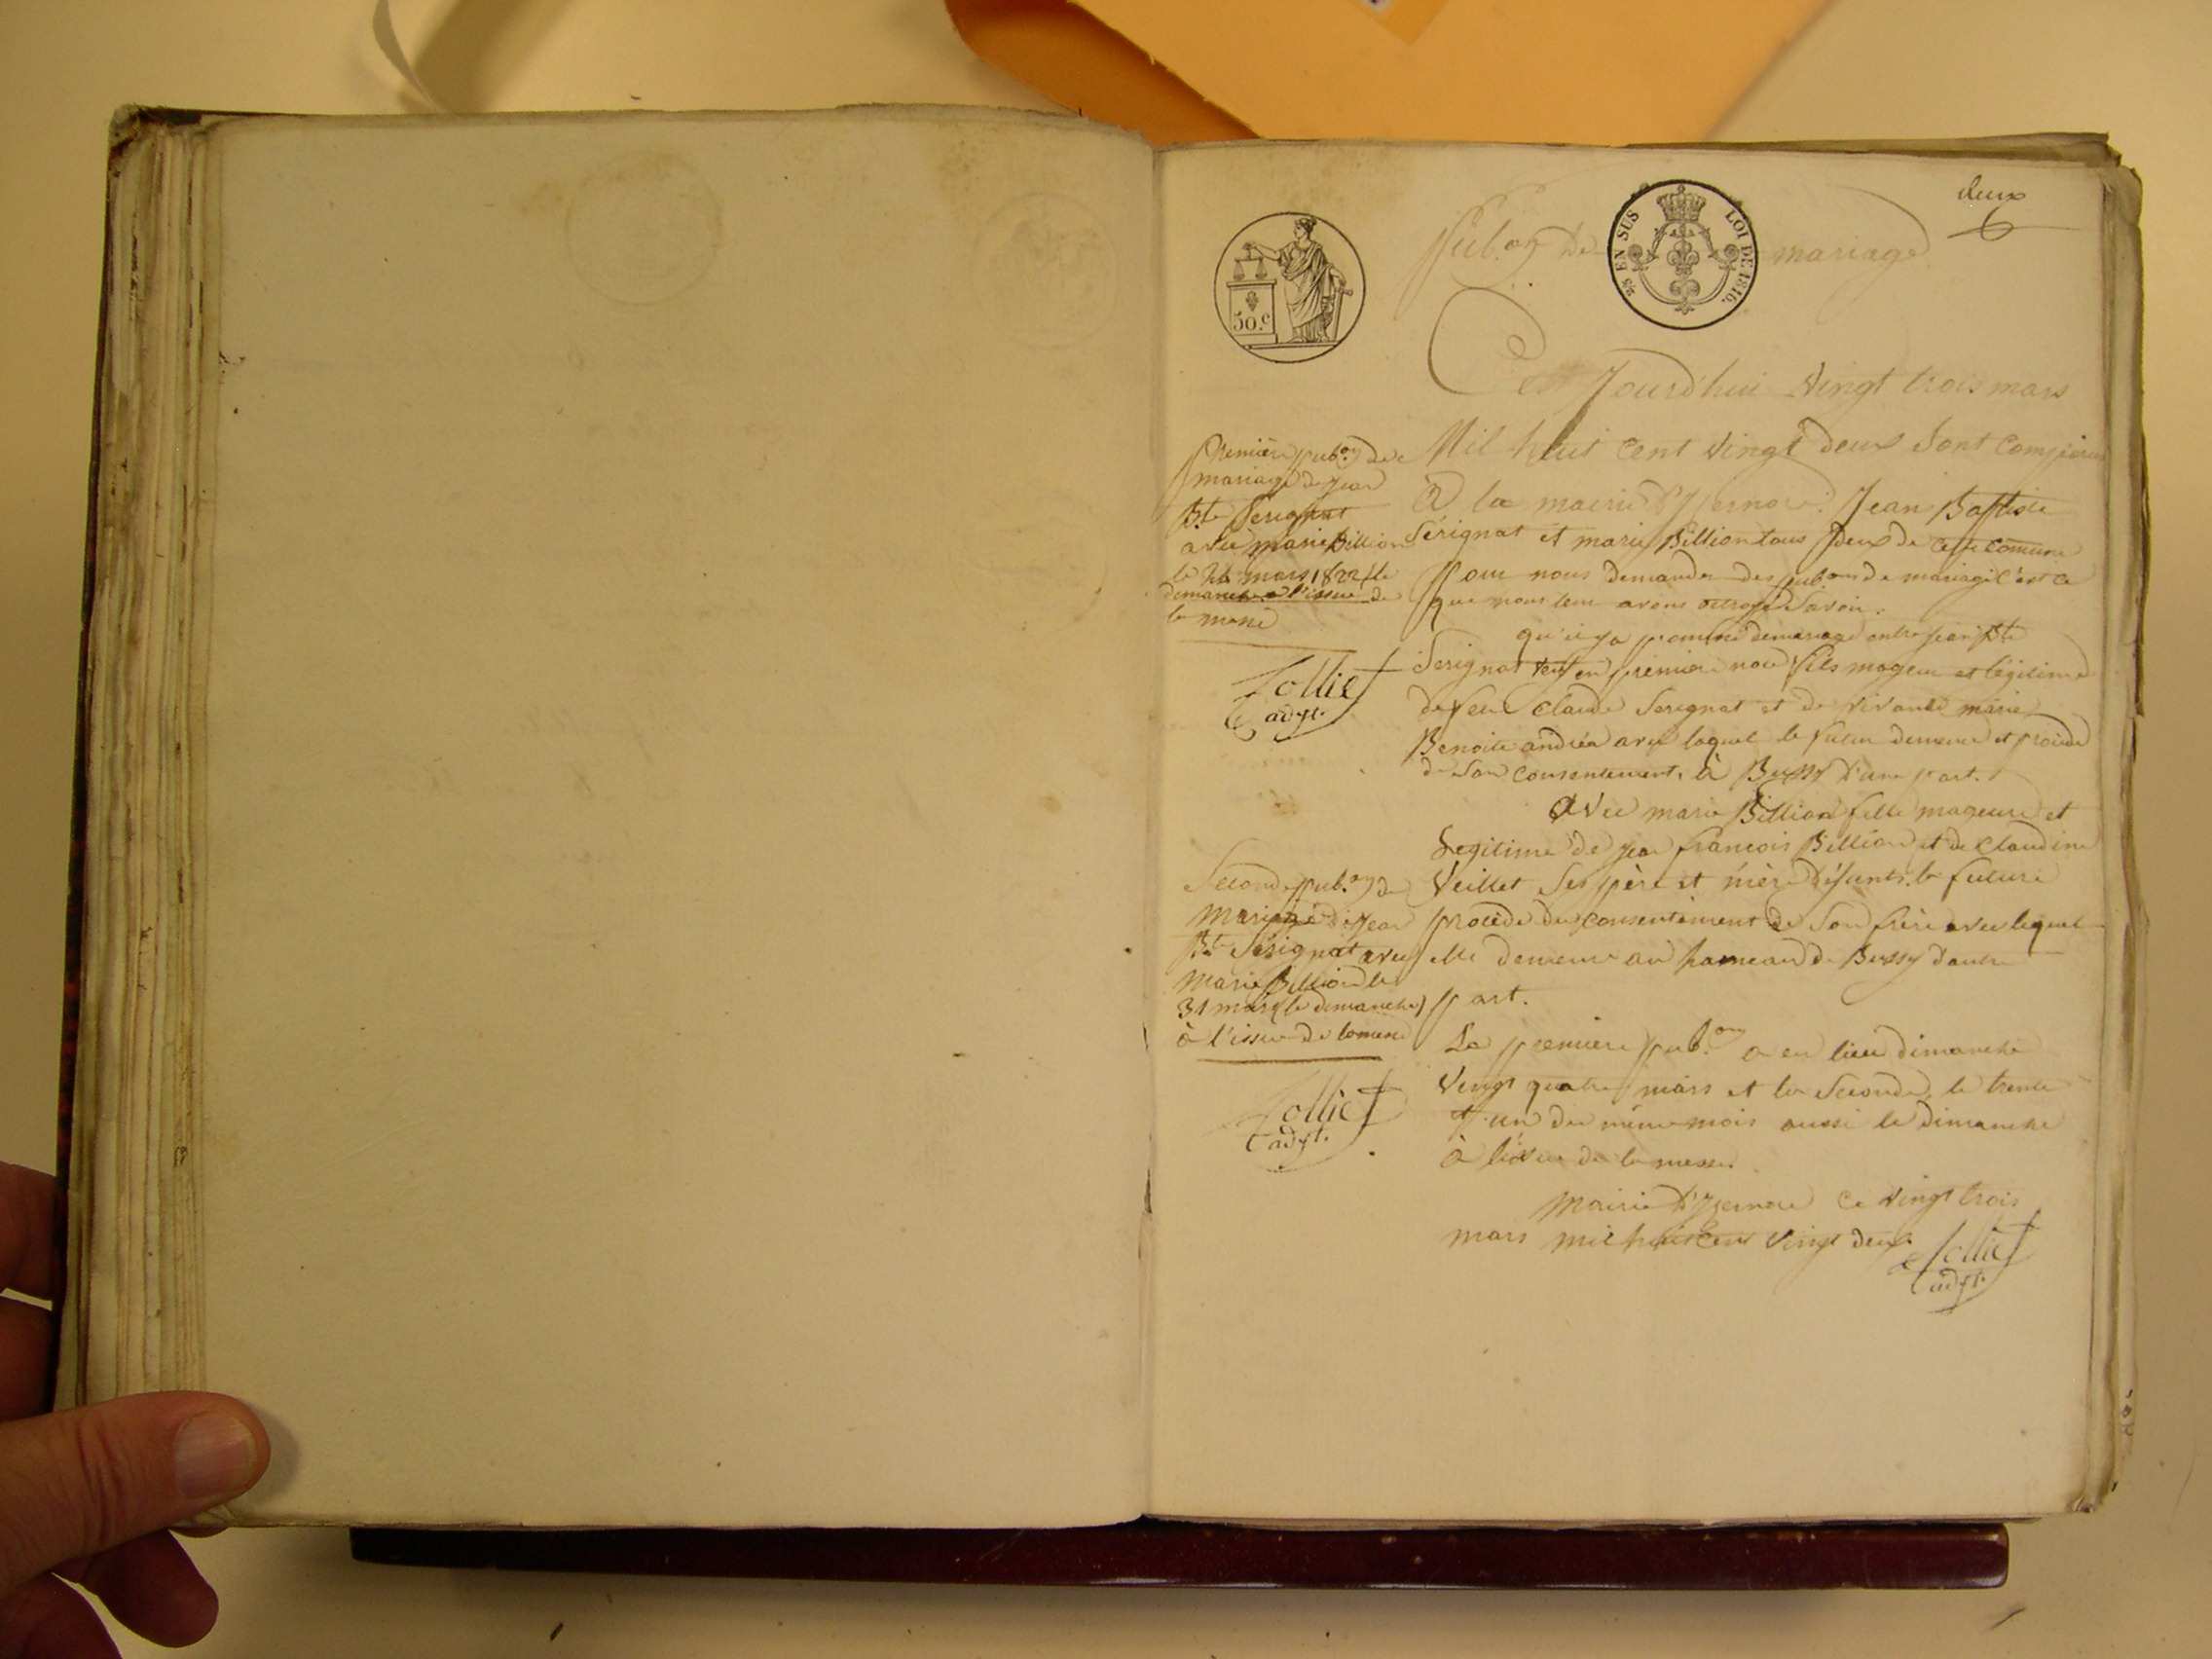 deux
Pub.on de mariage
50.c
25 EN SUS LOI DE 1816.
Cest Jourd'hui vingt trois mars
Mil huit cent vingt deux sont comparus
à la mairie d'Yzernore Jean Baptiste
Sérignat et marie Billion tous deux de cette comune
pour nous demander des pub.ons de mariage c'est ce
que nous leur avons octroyé Savoir:
qu'il y a promesse de mariage entre jean Bte
Serignat veuf en premiere noce fils mageur et légitime
de feu Claude Serignat et de vivante marie
Benoite andréa avec laquel le futur demeure et procède
de son consentement, à Bussy d'une part.
avec marie Billion fille mageure et
Legitime de jean francois Billion et de claudine
Veillet ses père et mère défunts. la future
procède du consentement de son frère avec lequel
elle demeure au hameau de Bussy d'autre
part.
La premiere pub.on a eu lieu dimanche
vingt quatre mars et la seconde, le trente
et un du même mois aussi le dimanche
à l'issue de la messe.
Mairie d'Yzernore ce vingt trois
mars mil huit cent vingt deux
Tolliet
adjt.
Première pub.on de
mariage de jean
Bte Serignat
avec marie Billion
le 24 mars 1822 le
dimanche à l'issue de
la messe
Tolliet
adjt.
Seconde pub.on de
mariage de jean
Bte Sérignat avec
marie Billion le
31 mars (le dimanche)
à l'issue de la messe
Tolliet
adjt.